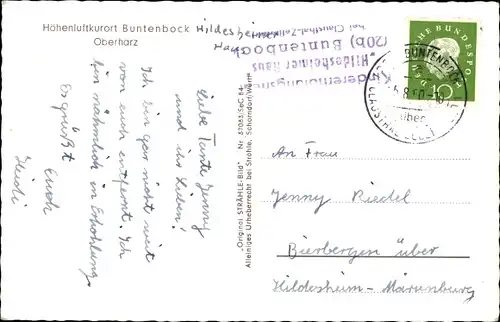 Höhenluftkurort Buntenbock
Oberharz
Hildesheimer
Haus
Kindererholungsheim
Hildesheimer Haus
(20b) Buntenbock
bei Clausthal-Zellerfeld
Liebe Tante Jenny
und ihr Lieben!
Ich bin gar nicht weit
von euch entfernt. Ich
bin nähmlich in Erhohlung.
Es grüßt Euch
Heidi
"Original STRÄHLE-Bild" Nr. 37085/SeC 84
Alleiniges Urheberrecht bei Strähle, Schorndorf/Württ
DEUTSCHE BUNDESPOST
10
BUNTENBOCK
über
CLAUSTHAL-ZELLERF
An Frau
Jenny Riedel
Bierbergen über
Hildesheim-Marienburg